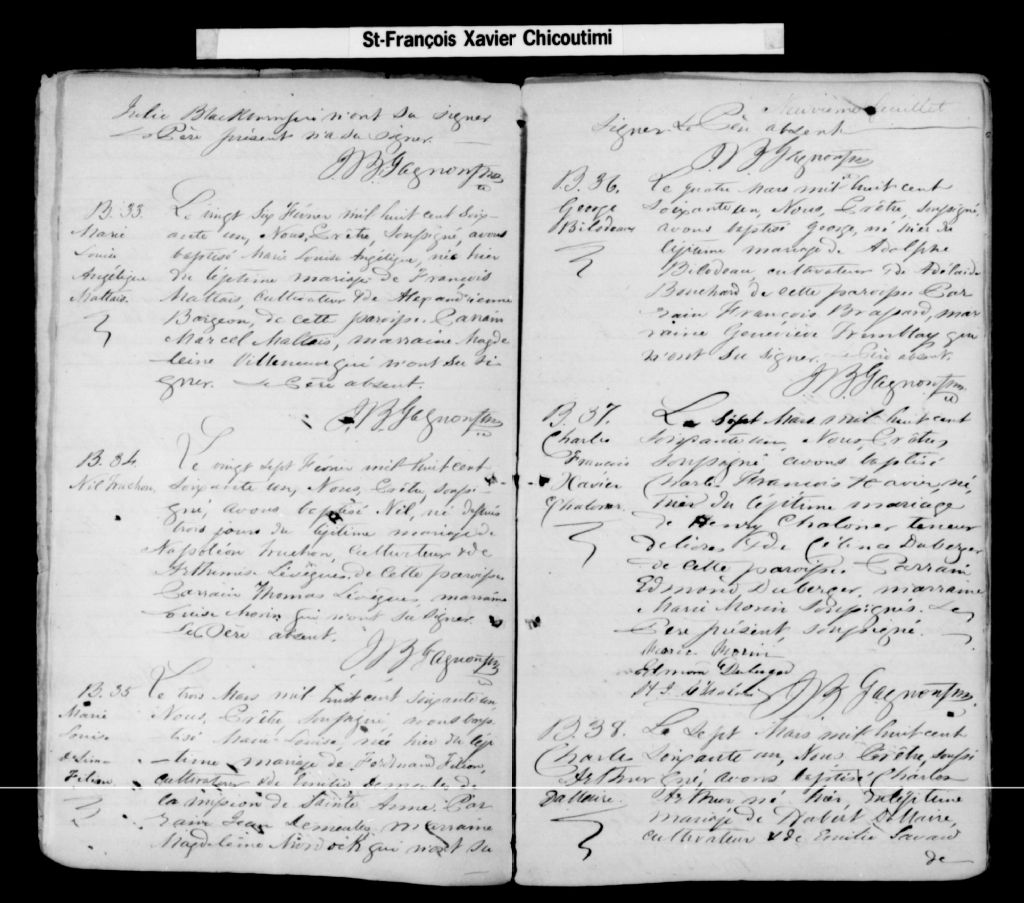 St-François Xavier Chicoutimi
Julie Blackburn qui n'ont su signer
Le Père présent n'a su signer.
J.B. Gagnon Ptre
B. 33.
Marie
Louise
Angélique
Maltais.
Le vingt six Février mil huit cent soix-
ante un, Nous, Prêtre, soussigné, avons
baptisé Marie Louise Angélique, née hier
du légitime mariage de François
Maltais, cultivateur & de Alexandrienne
de cette paroisse. Parrain
Marcel Maltais, marraine Magde
leine Villeneuve qui n'ont su si
gner. Le Père absent.
J.B. Gagnon Ptre
B. 34.
Nil Truchon.
Le vingt sept Février mil huit cent
soixante un, Nous, Prêtre, soussi-
gné, avons baptisé Nil, né depuis
trois jours du légitime mariage de
Napoléon Truchon, cultivateur & de
Arthemise Lévèque, de cette paroisse
Parrain Thomas Lévèque, marraine
Louise Morin qui n'ont su signer
Le Père absent.
J.B. Gagnon Ptre
B. 35
Marie
Louise
Filion.
Le trois Mars mil huit cent soixante un
Nous, Prêtre, soussigné, avons bap
tisé Marie Louise, née hier du légi
-time mariage de Ferdinand Filion,
cultivateur & de Emilie Demeules de
la mission de Sainte Anne. Par
rain Jean Demeules, marraine
Magdeleine Murdock qui n'ont su
Neuvième feuillet
signer. Le Père absent
J.B. Gagnon Ptre
B. 36.
George
Bilodeau
Le quatre Mars mil huit cent
soixante un, Nous, Prêtre, soussigné,
avons baptisé George, né hier du
légitime mariage de Adolphe
Bilodeau cultivateur & de Adélaide
Bouchard de cette paroisse. Par
rain François Brassard, mar
raine Geneviève Tremblay qui
n'ont su signer. Le Père absent.
J.B. Gagnon Ptre
B. 37.
Charles
François
Xavier
Chaloner.
Le Sept Mars mil huit cent
soixante un, Nous, Prêtre,
soussigné, avons baptisé
Charles François Xavier, né,
hier du légitime mariage
de Henry Chaloner teneur
de livres & de Célina Duberger
de cette paroisse. Parrain
Edmond Duberger, marraine
Marie Morin soussignés. Le
Père présent soussigné.
Marie Morin
Edmond Duberger
J.B. Gagnon Ptre
B. 38.
Charles
Arthur
Dallaire.
Le Sept Mars mil huit cent
soixante un, Nous, Prêtre, soussi
gné, avons baptisé Charles
Arthur né hier, du légitime
mariage de Dallaire,
cultivateur & de Emilie Savard
de